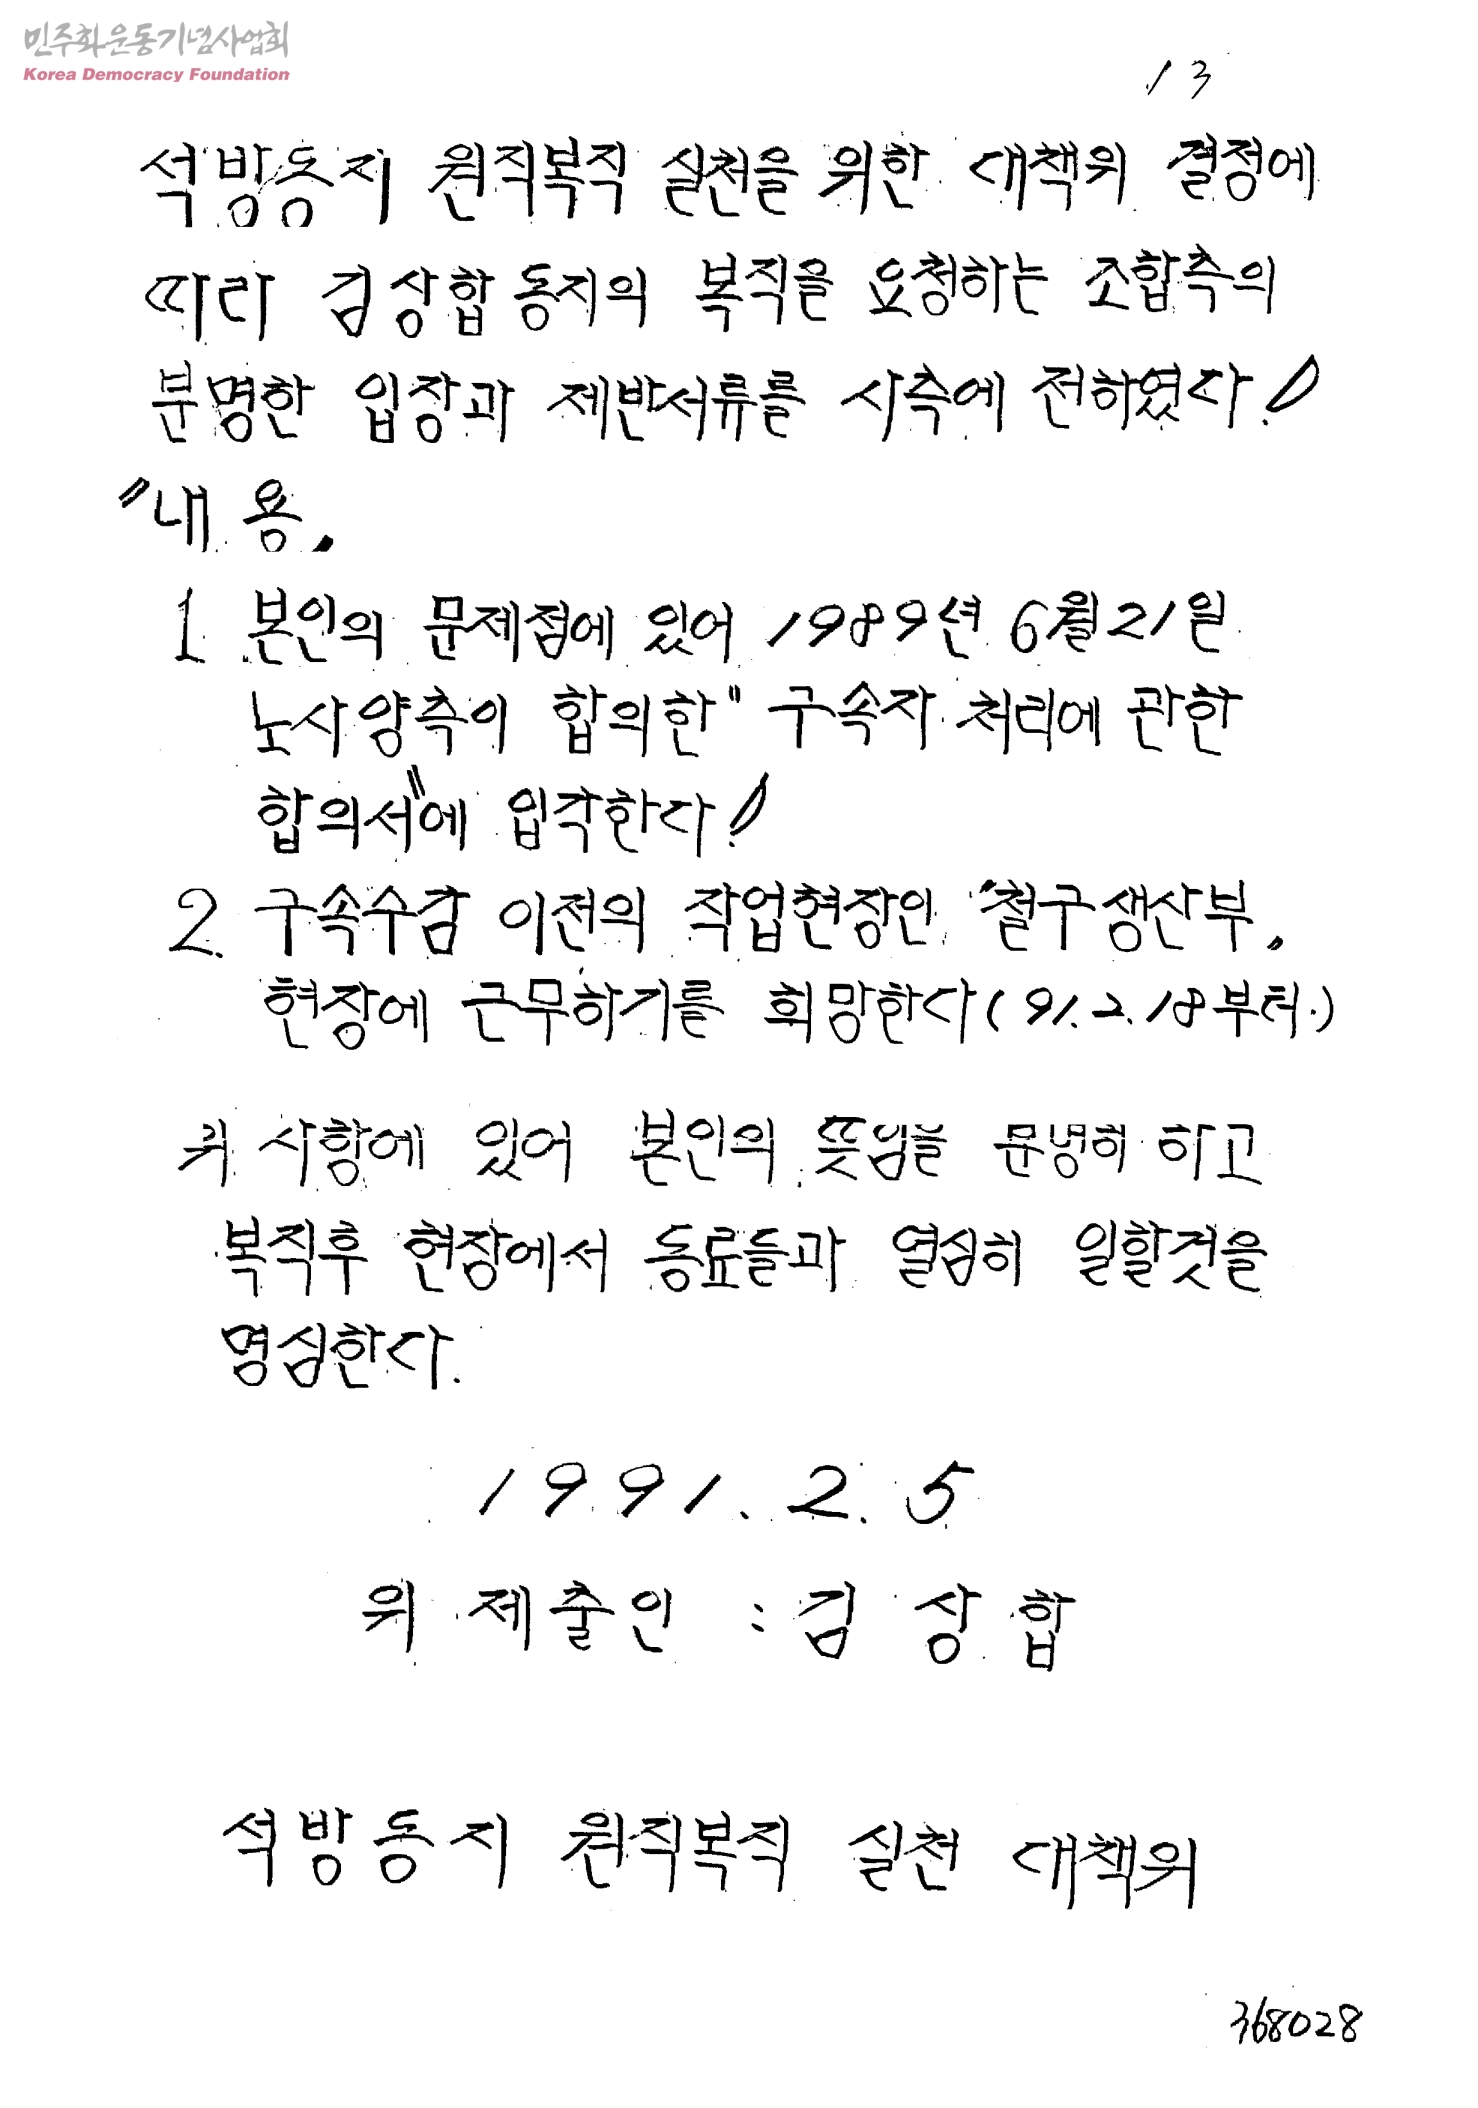 민주화운동기념사업회
Korea Democracy Foundation
13
석방동지 원직복직 실천을 위한 대책위 결정에
따라 김상합 동지의 복직을 요청하는 조합측의
분명한 입장과 제반서류를 사측에 전하였다!
"내용"
1. 본인의 문제점에 있어 1989년 6월 21일
노사양측이 합의한 "구속자 처리에 관한
합의서"에 입각한다!
2. 구속수감 이전의 작업현장인 "철구생산부"
현장에 근무하기를 희망한다(91.2.18부터.)
위 사항에 있어 본인의 뜻임을 분명히 하고
복직후 현장에서 동료들과 열심히 일할것을
명심한다.
1991. 2. 5
위 제출인 : 김상합
석방동지 원직복직 실천 대책위
368028